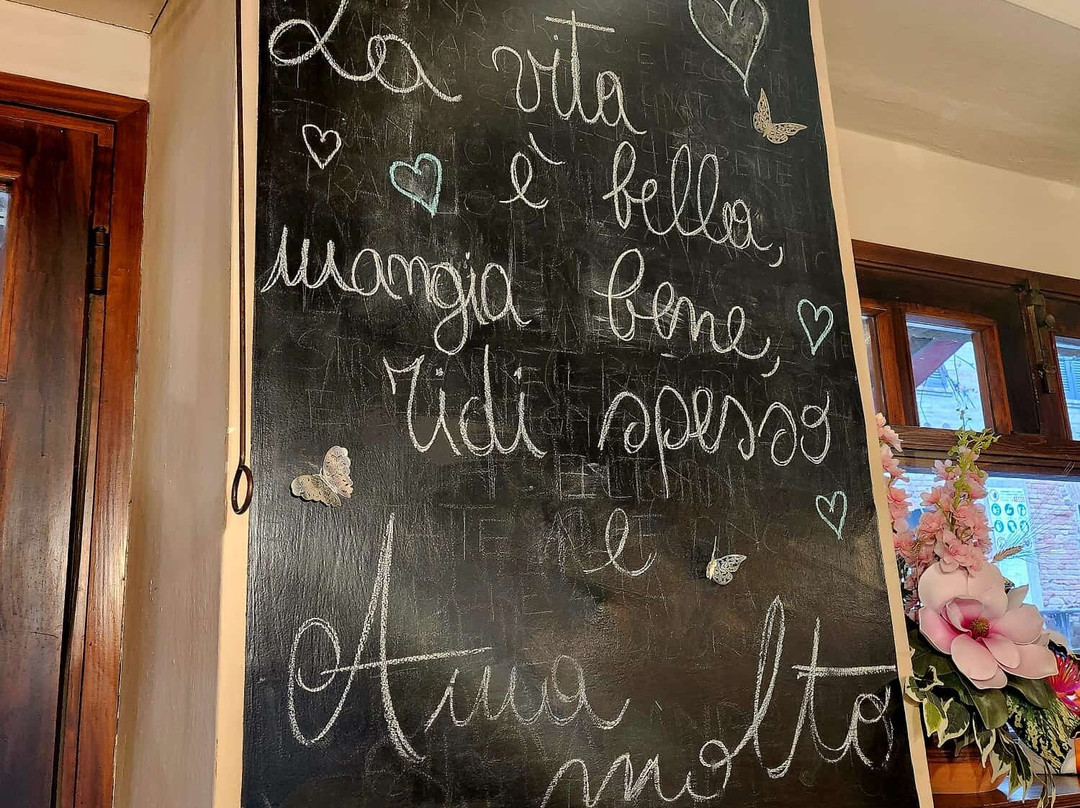 La vita
è bella,
mangia bene,
ridi spesso
e
Ama
molto